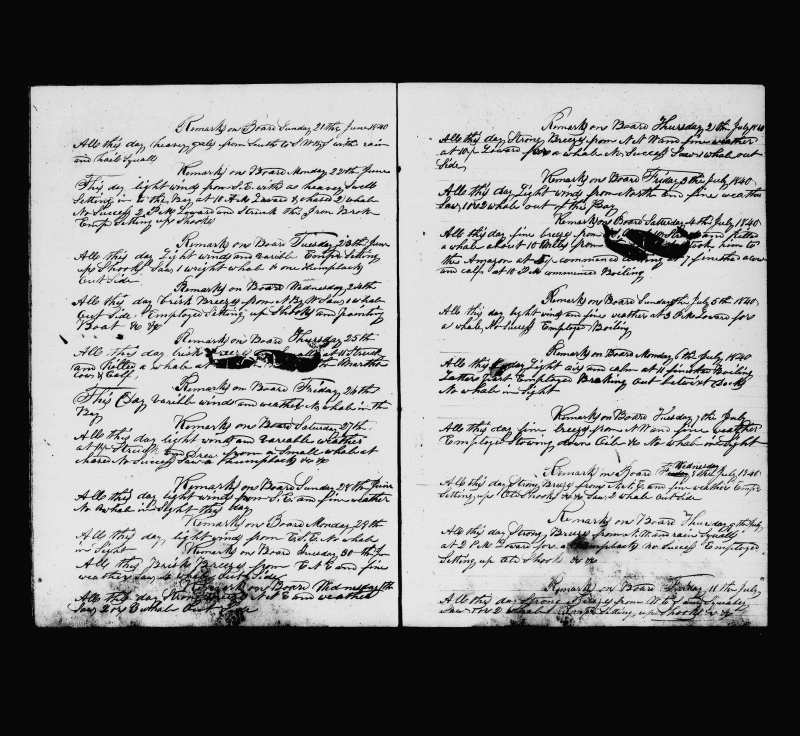 Remarks on Board Sunday 21th June 1840
All this day heavy gals from South to S W By S with rain
and hail Squalls
Remarks on Board Monday 22th June
This day light wind from S. E. with a heavy Swell
Setting in to the Bay at 10 A M Loward & chased 2 whale
No Success 2 P.M Loward and Struck the Iron Broke
Emp. Setting up Shooks
Remarks on Boar Tuesday 23th June
All this day Light winds and varible Emp Setting
up Shooks Saw 1 wright whale & one Humpback
Out Side
Remarks on Board Wednesday 24th
All this day Brisk Breeze from N By W Saw 1 whale
Out Side. Employed Setting up Shooks and painting
Boat &c &c
Remarks on Board Thursday 25th
All this day brisk Breeze at 11 Struck
and Killed a whale at the Martha
Cow & Calf
Remarks on Board Friday 26th
This Day varible winds and weather No whale in the
Bay
Remarks on Board Saturday 27th
All this day light winds and variable weather
at Struck and Drew from a Small whale at
chased No Success Saw a Humpback &c &c
Remarks on Board Sunday 28th June
All this day light winds from S. E. and fine weather
No whale in Sight this day
Remarks on Board Monday 29th
All this day light wind from E.S.E. No whale
in Sight
Remarks on Boar Tuesday 30th Ju
All this Brisk Breeze from E N E and fine
weather Saw whales Out Side
Remarks on Board Wednesday 1th
All this day Strong Breeze and weather
Saw 2 or 3 whale Out Side
Remarks on Board Thursday 2th July 1840
All this day Strong Breeze from N N W and fine weather
at Loward for a whale No Success Saw 1 whale out
Side
Remarks on Board Friday 3th July 1840
All this day Light wind from North and fine weather
Saw 1 or 2 whale out of the Bay
Remarks on Board Saturday 4th July 1840
All this day fine breeze from and Killed
a whale about 10 Miles from took him to
the Amazon at commenced cutting at 7 finished a cow
and calf at 10 P M commenced Boiling
Remarks on Board Sunday th July 5th 1840
All this day light wind and fine weather at 3 P M Loward for
a whale, No Success Employed Boiling
Remarks on Board Monday 6th July 1840
All this day Light airs and calm at 11 finished Boiling
Latter part Employed Breaking Out betwixt Decks
No whale in Sight
Remarks on Board Tuesday 7th July
All this day fine breeze from N W and fine weather
Employed Stowing down Oil &c No whale in Sight
Wednesday
Remarks on Board Friday 8th July 1840
All this day Strong Breeze from N E and fine weather Emp
Setting up Old Shooks &c &c Saw 2 whale out Side
Remarks on Board Thursday 9th July
All this day Strong Breeze from and rain Squalls
at 2 P M Loward for a Humpback No Success Employed
Setting up Old Shook &c &c
Remarks on Board Friday 10th July
All this day Strong Breeze from and Squaley
Saw 1 or 2 whale Emp Setting up Shooks &c &c